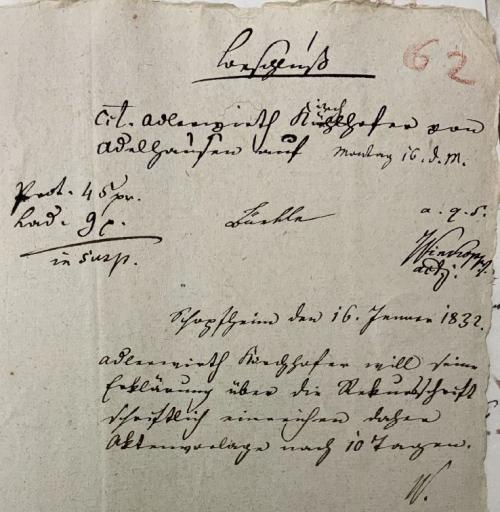 Beschluß
62
Cit. Adlerwirth Kirchhofer von
Adelhausen auf Montag 16. d. M.
Prot. 45 pr.
Lad. 9 c.
in susp.
Bürkle
a. g. s.
act.
Schopfheim den 16. Jenner 1832.
Adlerwirth Kirchhofer will seine
Erklärung über die Rekursschrift
schriftlich einreichen daher
Aktenvorlage nach 10 Tagen.
W.